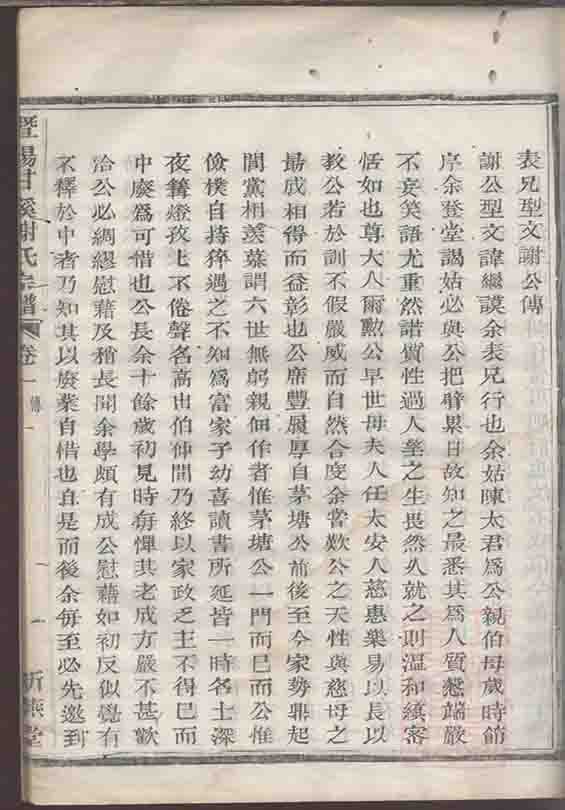 表兄型文謝公傳
謝公型文諱繼謨余表兄行也余姑陳太君為公親伯母歲時節
序余登堂謁姑必與公把臂累日故知之最悉其為人質慤端嚴
不妄笑語尤重然諾質性過人望之生畏然久就之則溫和縝密
恬如也尊大人爾勳公早世母夫人任太安人慈惠樂易以長以
教公若於訓不假嚴威而自然合度余嘗歎公之天性與慈母之
勗成相得而益彰也公席豐履厚自茅塘公前後至今家勢鼎起
閭黨相羨慕謂六世無躬親佃作者惟茅塘公一門而已而公惟
儉樸自持猝遇之不知為富家子幼喜讀書所延皆一時名士深
夜篝燈孜孜不倦聲名高出伯仲間乃終以家政乏主不得已而
中廢為可惜也公長余十餘歲初見時每憚其老成方嚴不甚歡
洽公必綢繆慰藉及稍長聞余學頗有成公慰藉如初反似覺有
不釋於中者乃知其以廢業自惜也自是而後余每至必先邀到
暨陽甘溪謝氏宗譜 卷一 傳 一